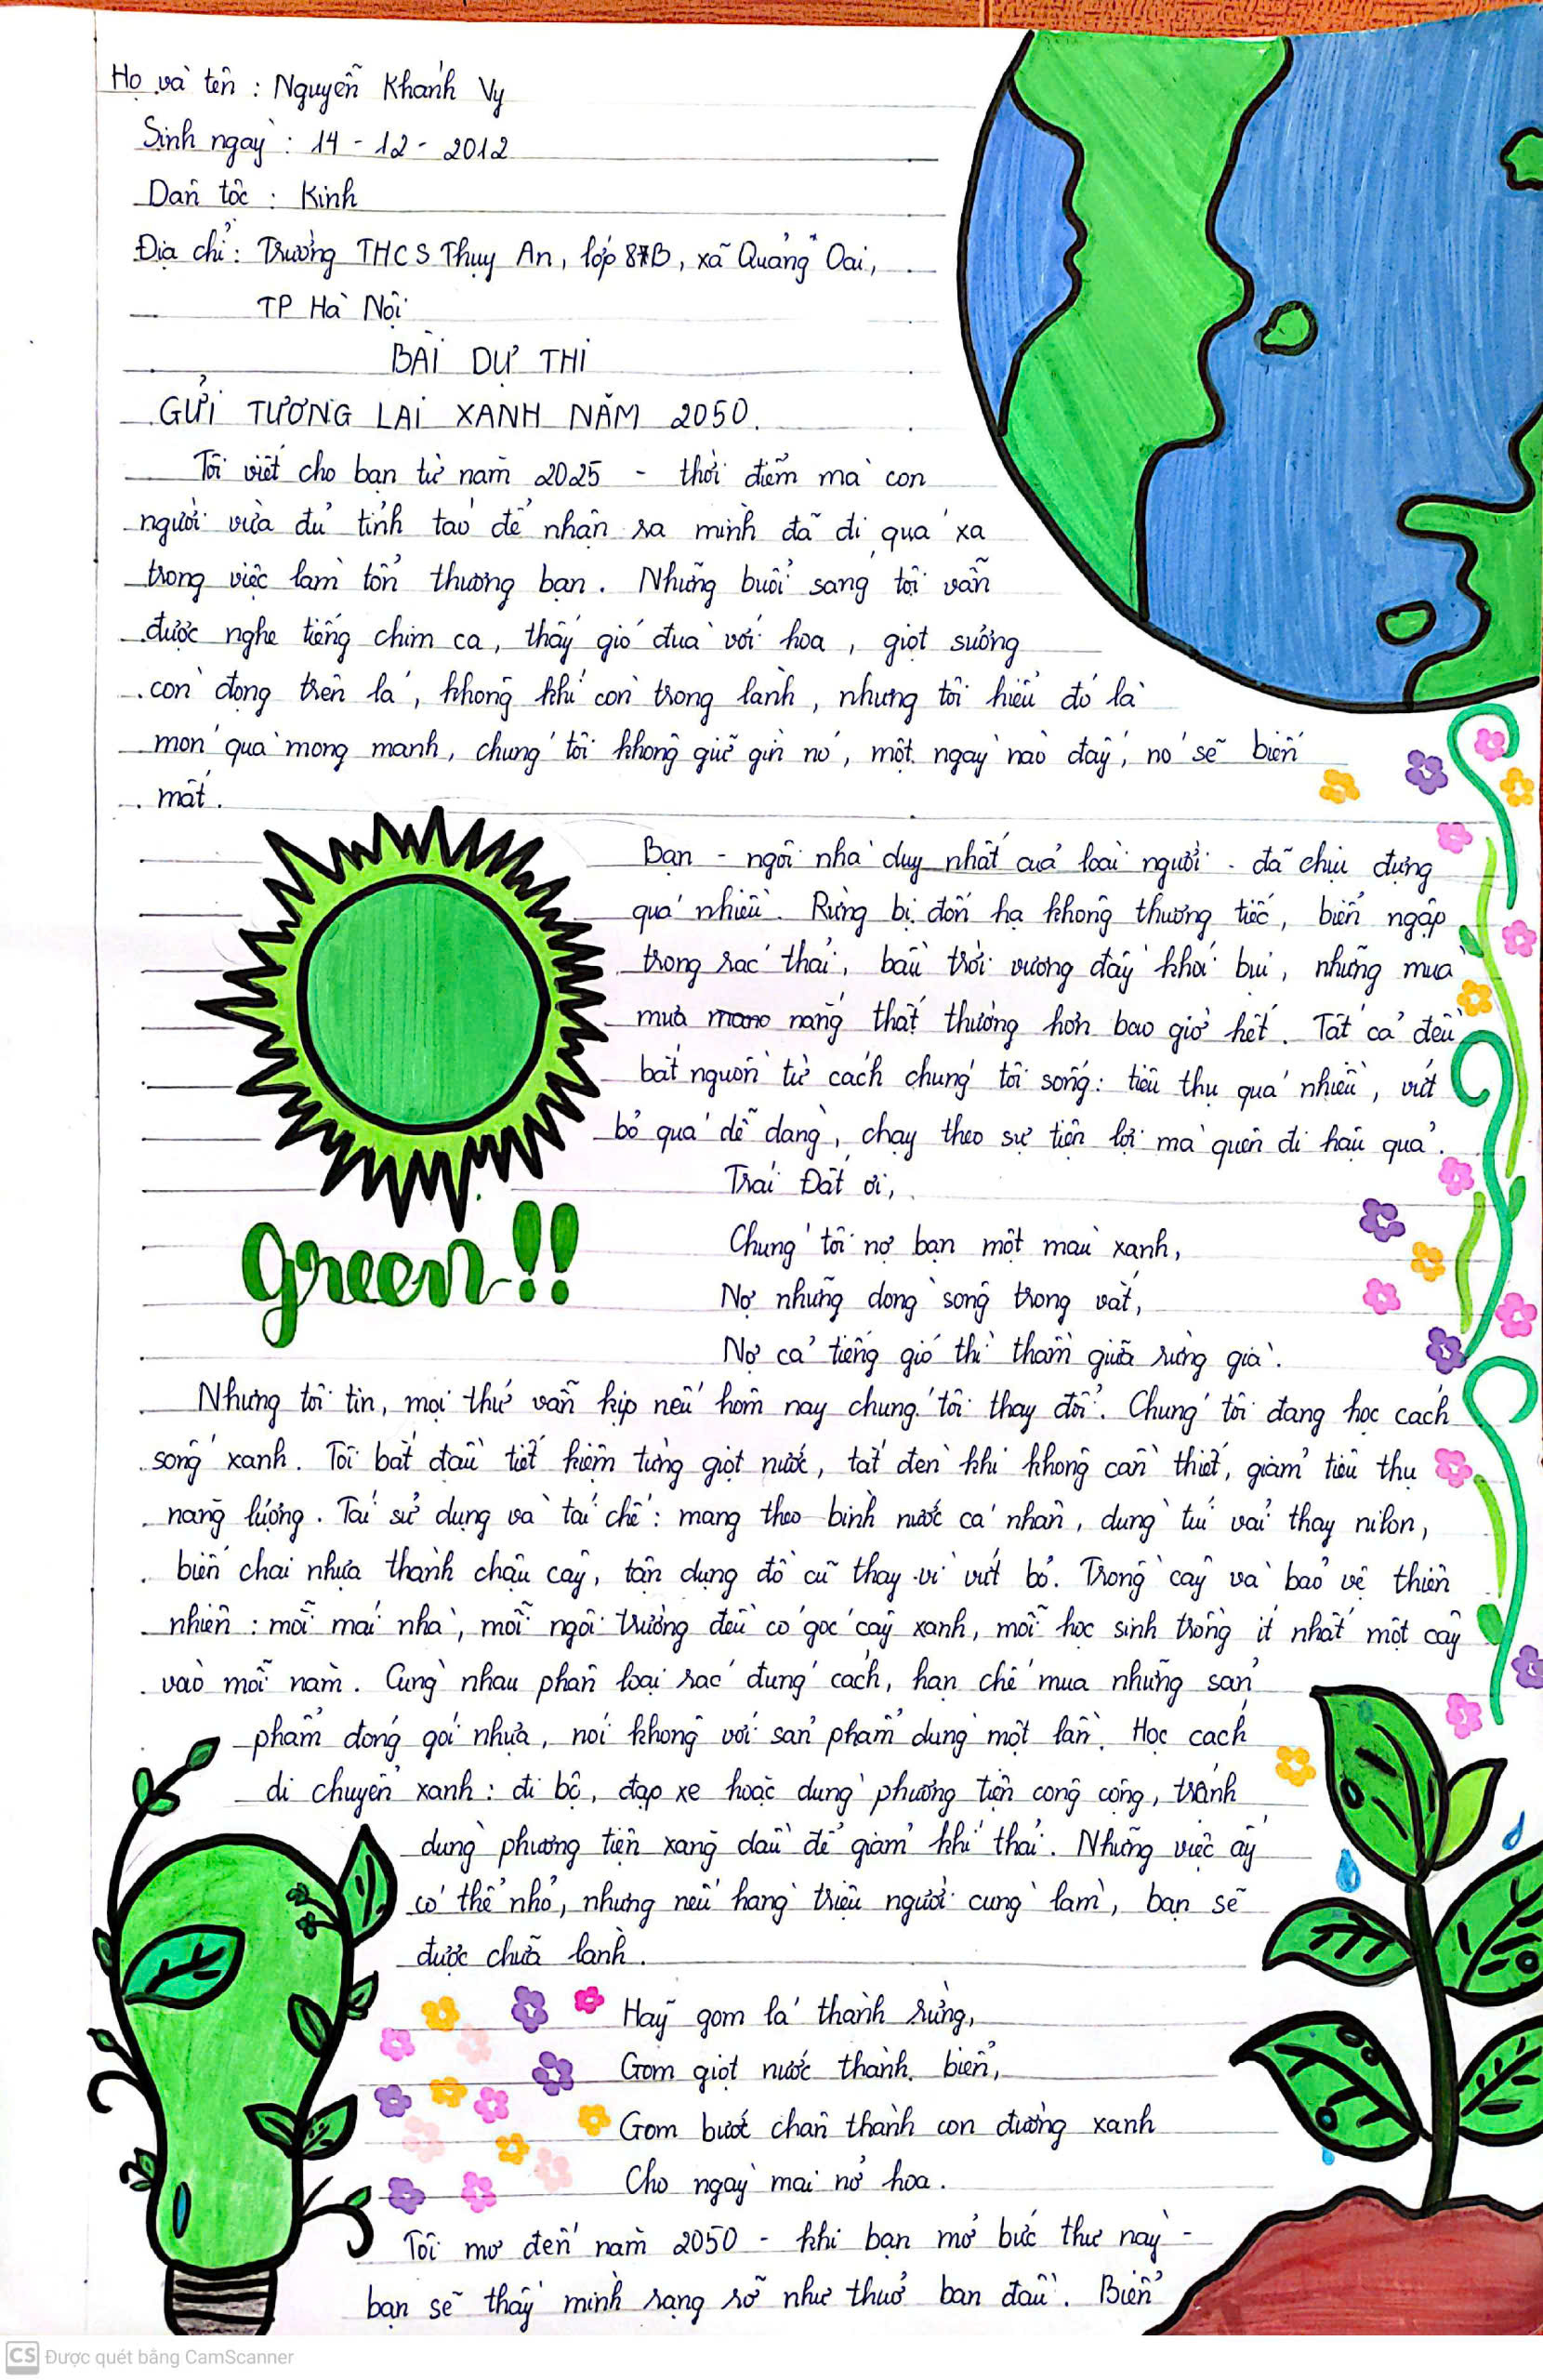 Họ và tên : Nguyễn Khánh Vy
Sinh ngày : 14 - 12 - 2012
Dân tộc : Kinh
Địa chỉ : Trường THCS Thụy An, lớp 8B, xã Quảng Oai,
TP Hà Nội
BÀI DỰ THI
GỬI TƯƠNG LAI XANH NĂM 2050.
Tôi viết cho bạn từ năm 2025 - thời điểm mà con
người vừa đủ tỉnh táo để nhận ra mình đã đi quá xa
trong việc làm tổn thương bạn. Những buổi sáng tôi vẫn
được nghe tiếng chim ca, thấy gió đùa với hoa, giọt sương
còn đọng trên lá, không khí còn trong lành, nhưng tôi hiểu đó là
món quà mong manh, chúng tôi không giữ gìn nó, một ngày nào đấy, nó sẽ biến
mất.
Bạn - ngôi nhà duy nhất của loài người - đã chịu đựng
quá nhiều. Rừng bị đốn hạ không thương tiếc, biển ngập
trong rác thải, bầu trời vương đầy khói bụi, những mùa
mưa nắng thất thường hơn bao giờ hết. Tất cả đều
bắt nguồn từ cách chúng tôi sống: tiêu thụ quá nhiều, vứt
bỏ quá dễ dàng, chạy theo sự tiện lợi mà quên đi hậu quả.
Trái Đất ơi,
Chúng tôi nợ bạn một màu xanh,
Nợ những dòng sông trong vắt,
Nợ cả tiếng gió thì thầm giữa rừng già.
green!!
Nhưng tôi tin, mọi thứ vẫn kịp nếu hôm nay chúng tôi thay đổi. Chúng tôi đang học cách
sống xanh. Tôi bắt đầu tiết kiệm từng giọt nước, tắt đèn khi không cần thiết, giảm tiêu thụ
năng lượng. Tái sử dụng và tái chế : mang theo bình nước cá nhân, dùng túi vải thay nilon,
biến chai nhựa thành chậu cây, tận dụng đồ cũ thay vì vứt bỏ. Trồng cây và bảo vệ thiên
nhiên : mỗi mái nhà, mỗi ngôi trường đều có góc cây xanh, mỗi học sinh trồng ít nhất một cây
vào mỗi năm. Cùng nhau phân loại rác đúng cách, hạn chế mua những sản
phẩm đóng gói nhựa, nói không với sản phẩm dùng một lần. Học cách
di chuyển xanh : đi bộ, đạp xe hoặc dùng phương tiện công cộng, tránh
dùng phương tiện xăng dầu để giảm khí thải. Những việc ấy
có thể nhỏ, nhưng nếu hàng triệu người cùng làm, bạn sẽ
được chữa lành.
Hãy gom lá thành rừng,
Gom giọt nước thành biển,
Gom bước chân thành con đường xanh
Cho ngày mai nở hoa.
Tôi mơ đến năm 2050 - khi bạn mở bức thư này -
bạn sẽ thấy mình rạng rỡ như thuở ban đầu. Biển
CS Được quét bằng CamScanner